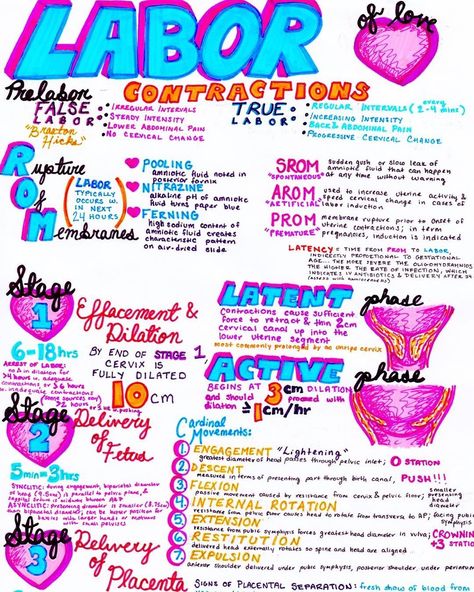 LABOR of love
CONTRACTIONS
Prelabor
FALSE LABOR
"Braxton Hicks"
• IRREGULAR INTERVALS
• STEADY INTENSITY
• LOWER ABDOMINAL PAIN
• NO CERVICAL CHANGE
TRUE LABOR
• REGULAR INTERVALS (every 2-4 mins)
• INCREASING INTENSITY
• BACK & ABDOMINAL PAIN
• PROGRESSIVE CERVICAL CHANGE
Rupture
Of
Membranes
(LABOR
TYPICALLY
OCCURS W.
IN NEXT
24 HOURS)
POOLING
amniotic fluid noted in
posterior fornix
NITRAZINE
alkaline pH of amniotic
fluid turns paper blue
FERNING
high sodium content of
amniotic fluid creates
characteristic pattern
on dried slide
SROM
"SPONTANEOUS"
sudden gush or slow leak of
amniotic fluid that can happen
at any time without warning
AROM
"ARTIFICIAL"
used to increase uterine activity &
speed cervical change in cases of
labor induction
PROM
"PREMATURE"
membrane rupture prior to onset of
uterine contractions; in term
pregnancies, induction is indicated
LATENCY = TIME FROM PROM TO LABOR,
INDIRECTLY PROPORTIONAL TO GESTATIONAL
AGE... THE MORE SEVERE THE OLIGOHYDRAMNIOS
THE HIGHER THE RATE OF INFECTION, WHICH
INDICATES IV ANTIBIOTICS & DELIVERY AFTER 34
Stage
1
Effacement &
Dilation
6-18hrs
ARREST OF LABOR:
no Δ in dilation for
BY END OF STAGE 1
CERVIX IS
FULLY DILATED
10cm
LATENT phase
contractions cause sufficient
force to retract & thin 2cm
cervical canal up into the
lower uterine segment
most commonly prolonged by an unripe cervix
ACTIVE phase
BEGINS AT 3cm DILATION
and should proceed with
dilation ≥1cm/hr
Stage
2
Delivery
of
Fetus
5min-3hrs
Cardinal
Movements:
1 ENGAGEMENT "Lightening"
greatest diameter of head passes through pelvic inlet; 0 STATION
2 DESCENT
measured in terms of presenting part through birth canal, PUSH!!!
3 FLEXION
passive movement caused by resistance from cervix & pelvic floor; smaller presenting head diameter
4 INTERNAL ROTATION
resistance from pelvic floor causes head to rotate from transverse to AP; facing pubic symphysis
5 EXTENSION
resistance from pubic symphysis forces greatest head diameter in vulva; CROWNING
+3 STATION
6 RESTITUTION
delivered head externally rotates so spine and head are aligned
7 EXPULSION
anterior shoulder delivered under pubic symphysis, posterior shoulder, under perineum
Stage
3
Delivery
of
Placenta
SIGNS OF PLACENTAL SEPARATION: fresh show of blood from